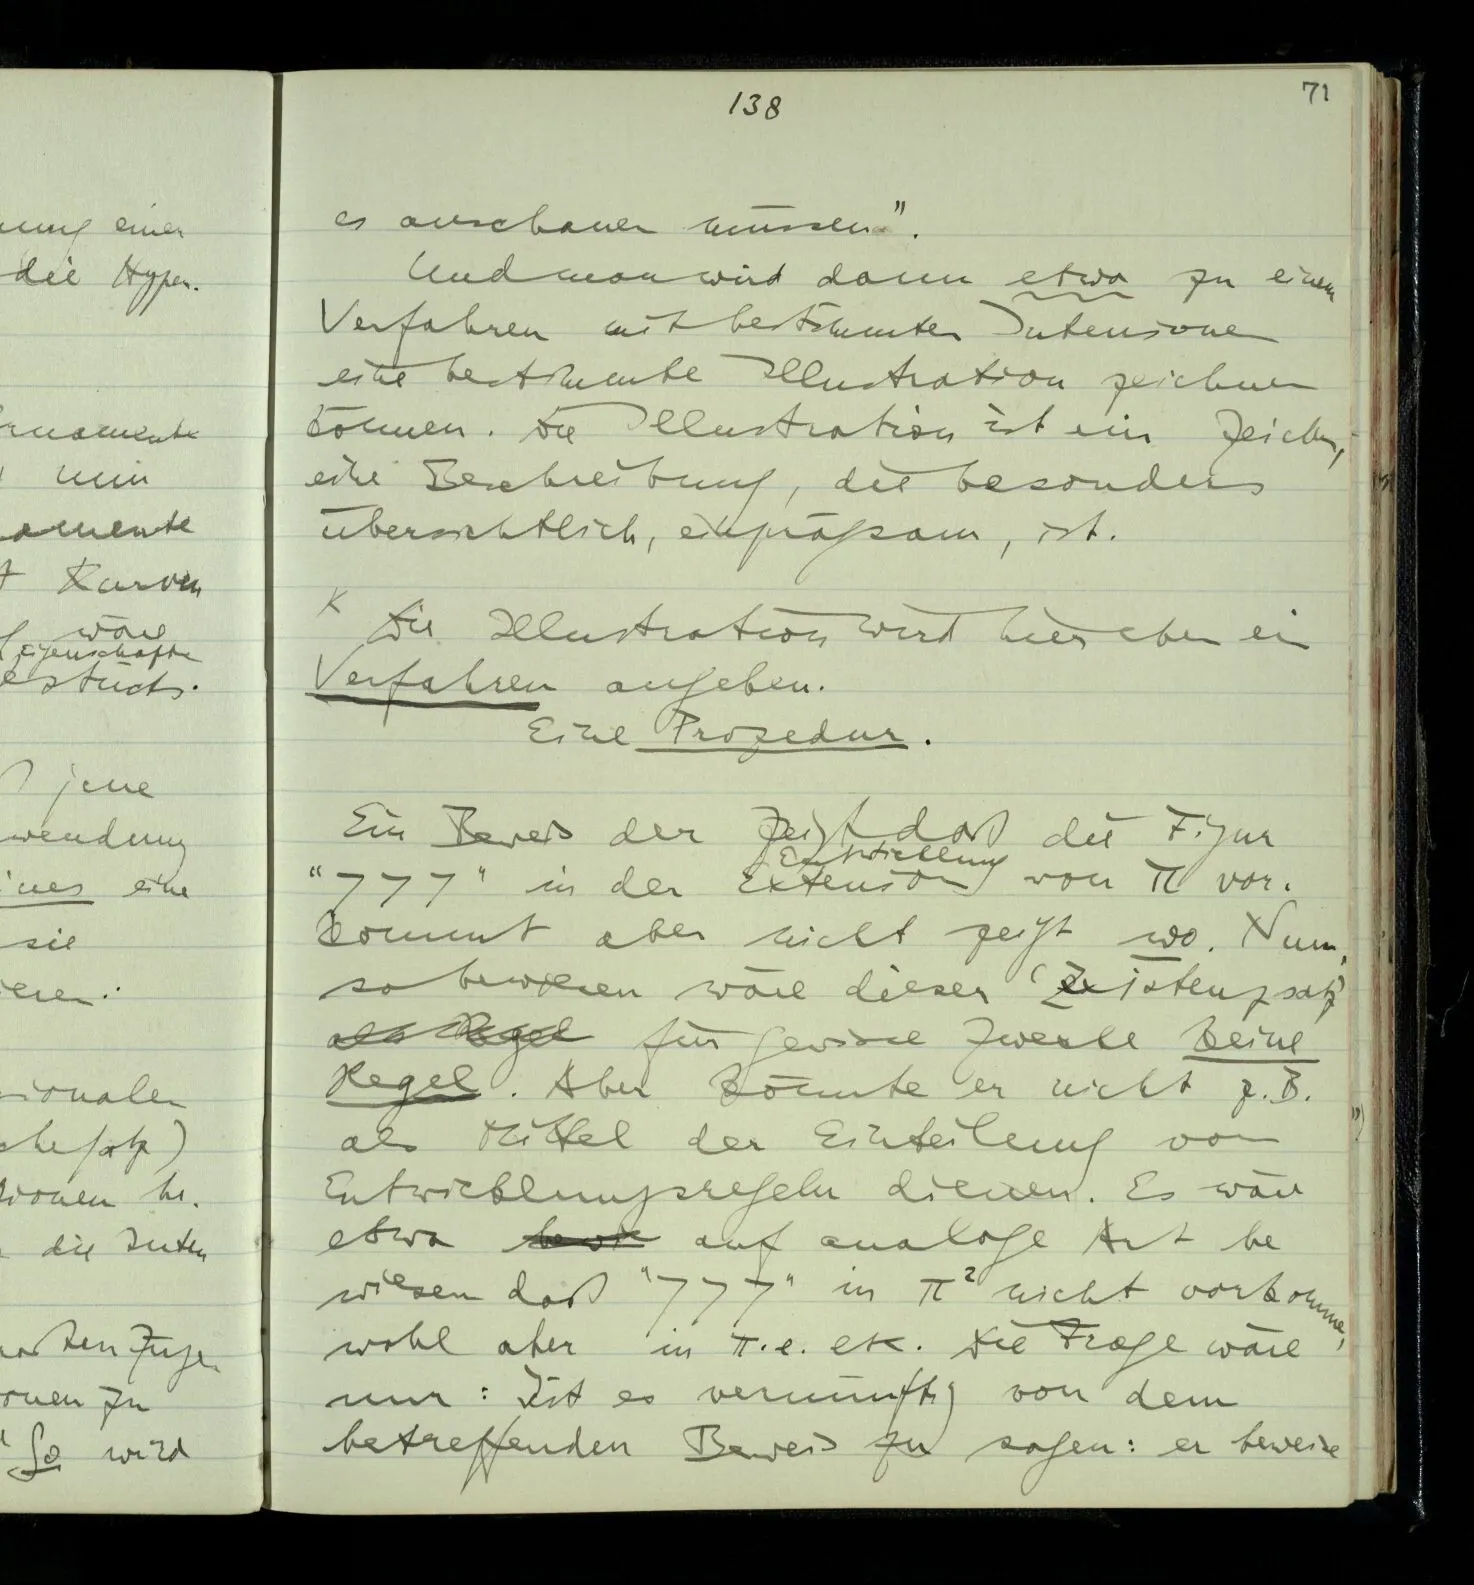 138
71
es anschauen müssen".
Und man wird dann etwa zu einem
Verfahren mit bestimmten Intensionen
eine bestimmte Illustration zeichnen
können. Die Illustration ist ein Zeichen,
eine Beschreibung, die besonders
übersichtlich, einprägsam, ist.
Die Illustration wird hier eben ein
Verfahren angeben.
Eine Prozedur.
Ein Beweis der zeigt daß die Figur
Entwicklung
"777" in der Extension von π vor-
kommt aber nicht zeigt wo. Nun,
so bewiesen wäre dieser 'Existenzsatz'
als Regel für gewisse Zwecke keine
Regel. Aber könnte er nicht z.B.
als Mittel der Einteilung von
Entwicklungsregeln dienen. Es wäre
etwa bewie auf analoge Art be
wiesen daß "777" in π² nicht vorkomme,
wohl aber in π.e. etc. Die Frage wäre
nur: Ist es vernünftig von dem
betreffenden Beweis zu sagen: er beweise
einer
die Hyper-
min
Kurven
wäre
jene
eine
sie
die Inten
So wird